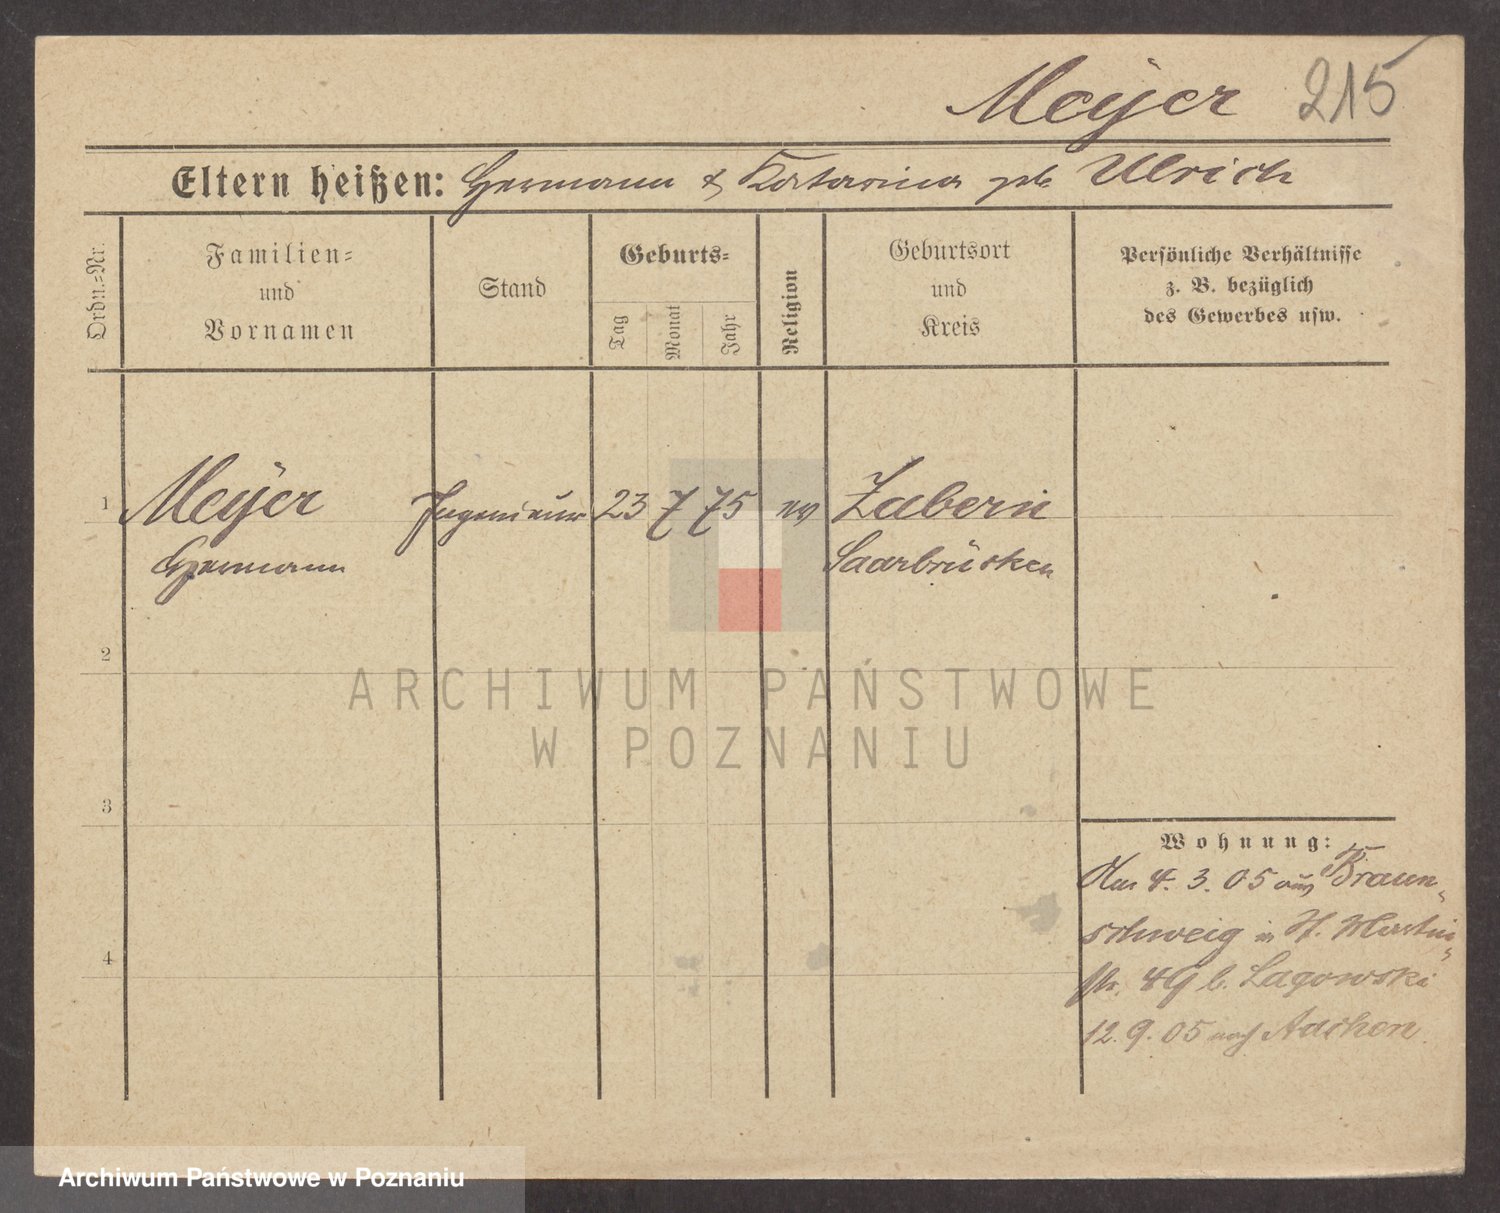 Meyer 215
Eltern heißen: Hermann & Katarina geb Ulrich
Ordn.=Nr.
Familien=
und
Vornamen
Stand
Geburts=
Tag
Monat
Jahr
Religion
Geburtsort
und
Kreis
Persönliche Verhältnisse
z. B. bezüglich
des Gewerbes usw.
1 Meyer Ingenieur 23 7 75 ev Zabern
Hermann Saarbrücken
2
3
4
ARCHIWUM PAŃSTWOWE
W POZNANIU
Wohnung:
Am 4. 3. 05 aus Braun-
schweig in St. Martin-
str. 49 b. Lagowski
12. 9. 05 nach Aachen
Archiwum Państwowe w Poznaniu